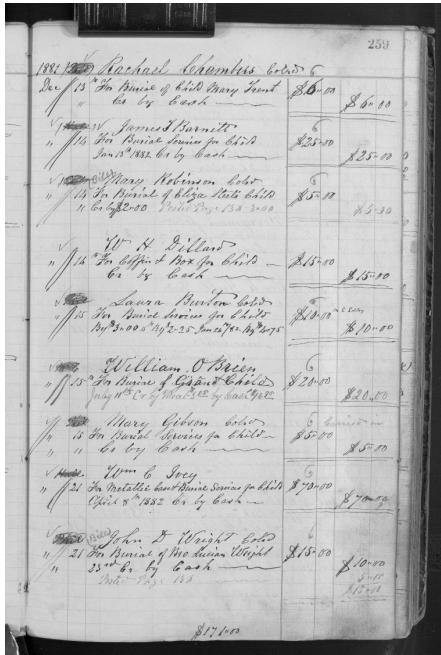 259
1881 Rachael Chambers Colod 6
Dec 13th For Burial of Child Mary Trent $6.00
" Cr by Cash $6.00
James T Barnett 6
" 14 For Burial Services for Child $25.00
Jan 13th 1882 Cr by Cash $25.00
Mary Robinson Colod 6
" 14 For Burial of Eliza Child $5.00
" Cr by $2.00 Posted Page 138 3.00 $5.00
Wm H Dillard
" 14th For Coffin & Box for Child $15.00
" Cr by Cash $15.00
Laura Burton Colod 6
" 15 For Burial Services for Child $10.00
$10.00
William O'Brien 6
" 15th For Burial of Grand Child $20.00
$20.00
Mary Gibson Colod 6
" 15 For Burial Services for Child $5.00
" " Cr by Cash $5.00
Wm C Ivey 6
" 21 For Metallic Case & Burial Services for Child $70.00
" April 8th 1882 Cr by Cash $70.00
John D Wright Colod 6
" 21 For Burial of Bro Wright $15.00
" 23rd Cr by Cash $10.00
Posted Page 138 5.00
$15.00
$171.00